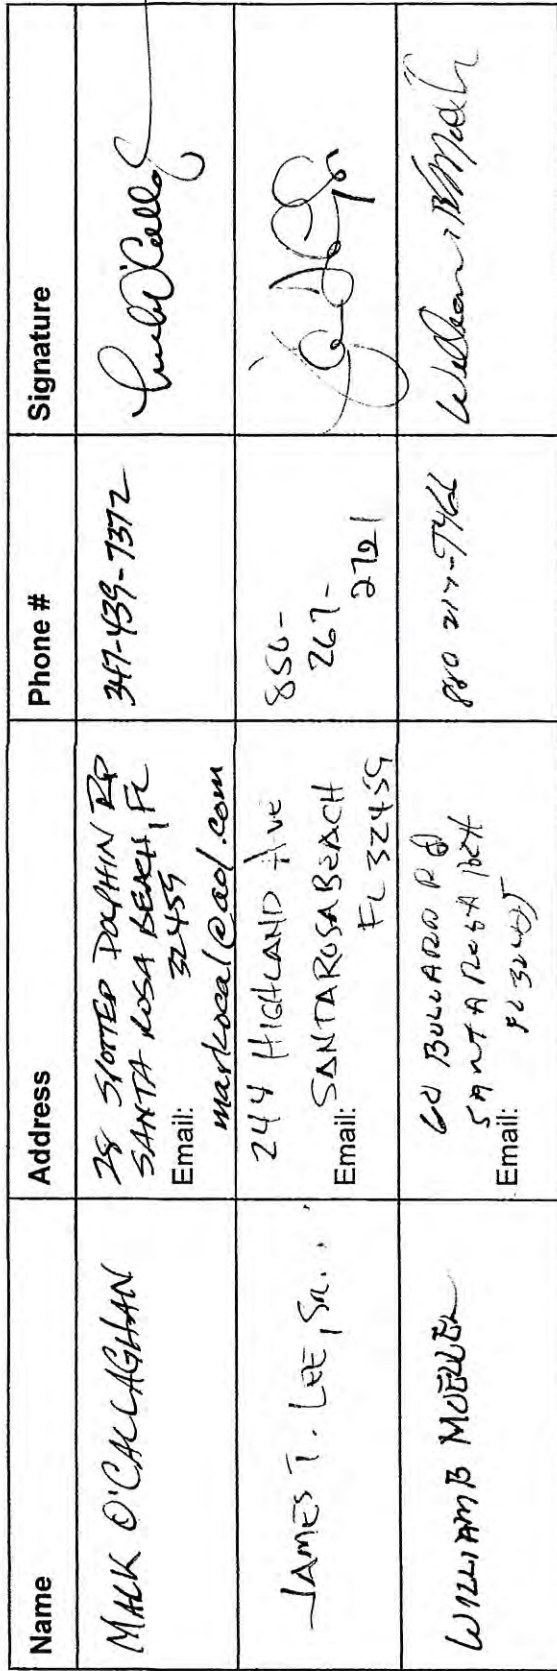 Name Address Phone # Signature
MARK O'CALLAGHAN
28 SPOTTED DOLPHIN RD
SANTA ROSA BEACH, FL
32459
Email:
markocal@aol.com
347-439-7372
JAMES T. LEE, SR.
244 HIGHLAND AVE
SANTA ROSA BEACH
FL 32459
Email:
850-
267-
2721
WILLIAM B MUELLER
BULLARD RD
SANTA ROSA BCH
Email: